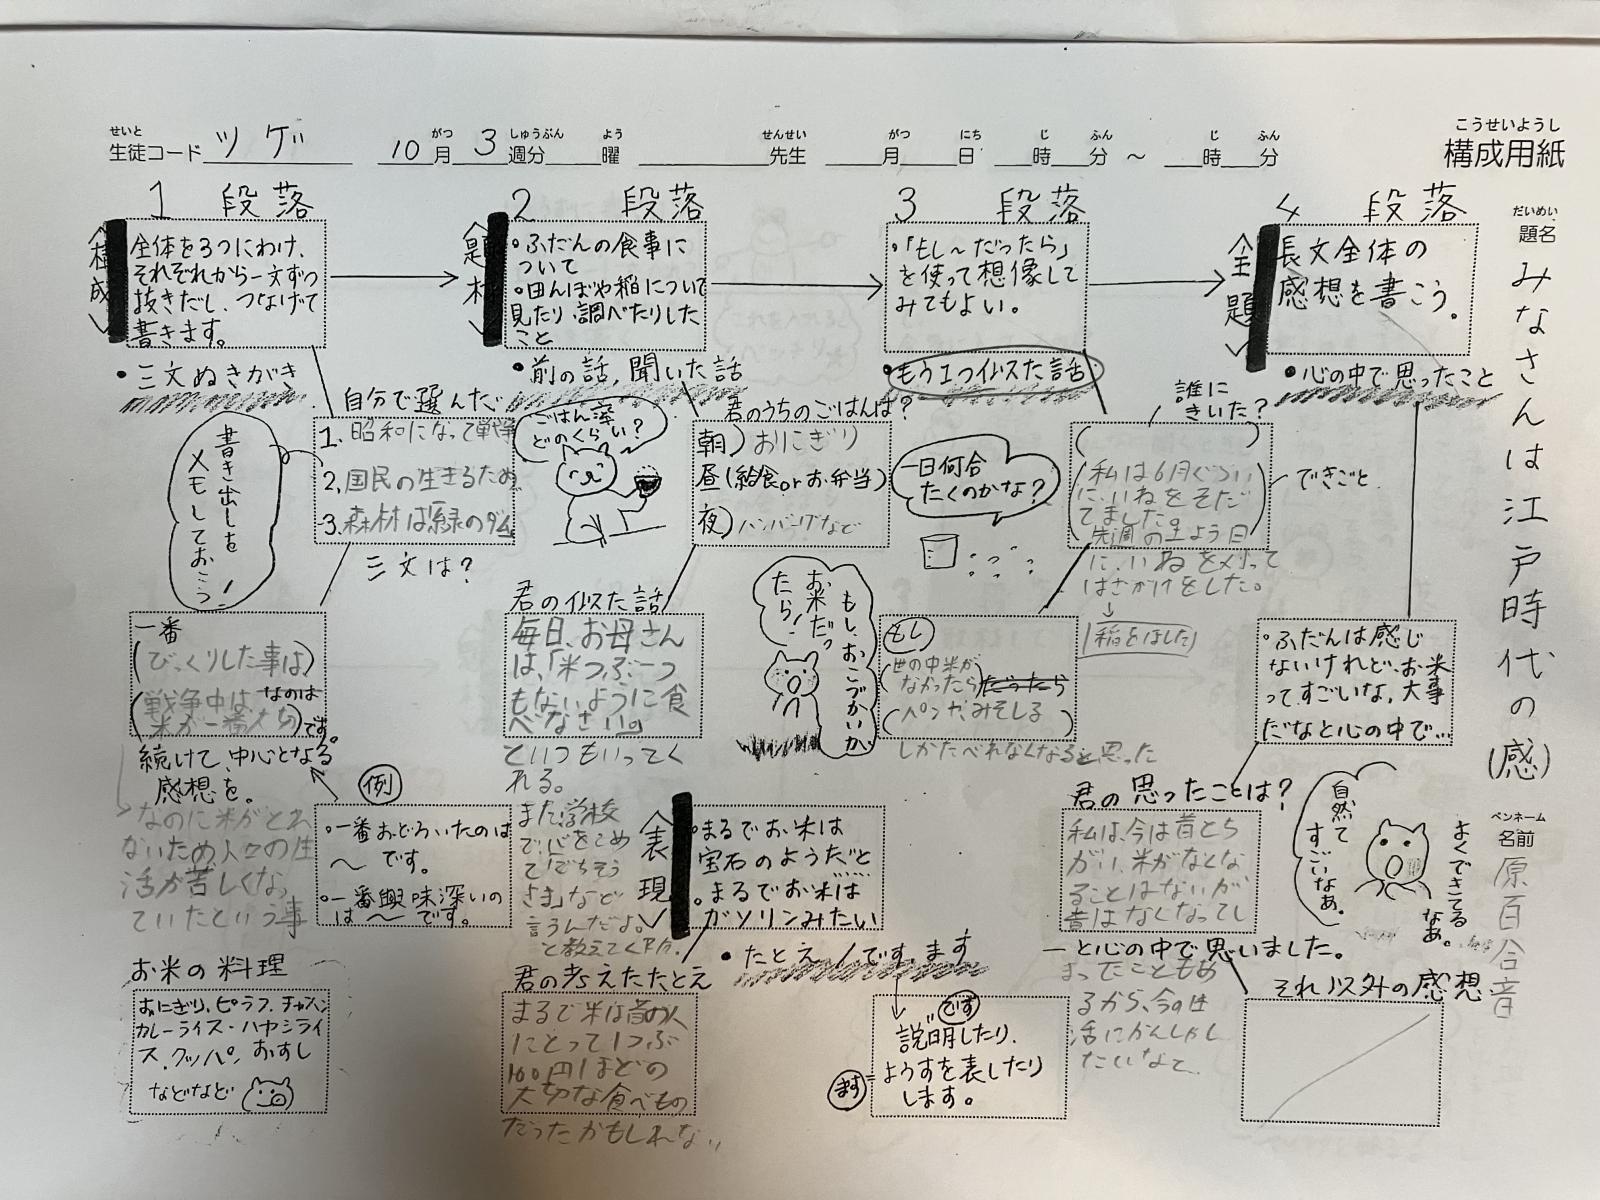 こうせいようし
構成用紙
せいと
生徒コード ツゲ
がつ しゅうぶん よう
10月 3週分 曜
せんせい
先生
がつ にち じ ふん じ ふん
月 日 時 分 ~ 時 分
だいめい
題名
みなさんは江戸時代の(感)
ペンネーム
名前
原百合音
1 段落
〈構成〉
全体を3つにわけ、
それぞれから一文ずつ
抜きだし、つなげて
書きます。
・三文ぬきがき
書き出しを
メモしておこう!
自分で選んだ
1. 昭和になって戦争
2. 国民の生きるため
3. 森林は緑のダム
三文は?
一番
(びっくりした事は)
(戦争中は、なのは
米が一番大切)です。
続けて、中心となる
感想を。
なのに米がとれ
ないため人々の生
活が苦しくな
ていたという事
例
・一番おどろいたのは
~です。
・一番興味深いの
は~です。
お米の料理
おにぎり、ピラフ、チャーハン
カレーライス・ハヤシライ
ス、クッパ、おすし
などなど
2 段落
〈題材〉
・ふだんの食事に
ついて
・田んぼや稲について
見たり、調べたりした
こと
・前の話,聞いた話
ごはん、
どのくらい?
君のうちのごはんは?
朝) おにぎり
昼(給食orお弁当)
夜) ハンバーグなど
君の似た話
毎日、お母さん
は、「米つぶ一つ
もないように食
べなさい。」
といつもいってく
れる。
また学校
で、心をこめ
て「ごちそう
さま」など
言うんだよ。
と教えてく
〈表現〉
・まるでお米は
宝石のようだと
・まるでお米は
ガソリンみたい
・たとえ/です、ます
君の考えたたとえ
まるで米は昔の人
にとって1つぶ
100円ほどの
大切な食べもの
だったかもしれない
です
説明したり、
ます=ようすを表したり
します。
3 段落
・「もし~だったら」
を使って想像して
みてもよい。
・もう1つ似た話
一日何合
たくのかな?
誰に
きいた?
( )
(私は6月ぐらい
に、いねをそだ
てました。
先週の土よう日
に、いねを刈って
はさがけをした。
↓
(稲をほした)
できごと
もし、おこづかいが
お米だっ
たら!
もし
(世の中米が
なかったら)だったら
(パンや、みそしる
)
しかたべれなくなると思った
4 段落
〈主題〉
長文全体の
感想を書こう。
・心の中で思ったこと
・ふだんは感じ
ないけれど、お米
ってすごいな、大事
だなと心の中で…
君の思ったことは?
私は、今は昔とち
がい、米がなくな
ることはないが
昔はなくなってし
―と心の中で思いました。
まったこともあ
るから、今の生
活にかんしゃし
たいなと
自然て
すごいなあ。
よくできてる
なあ。
それ以外の感想